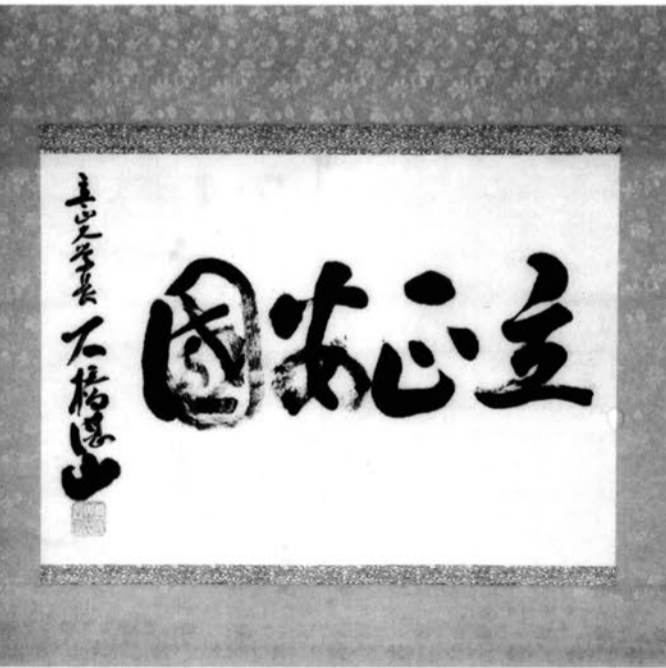 立正安國
立正大学長 石橋湛山